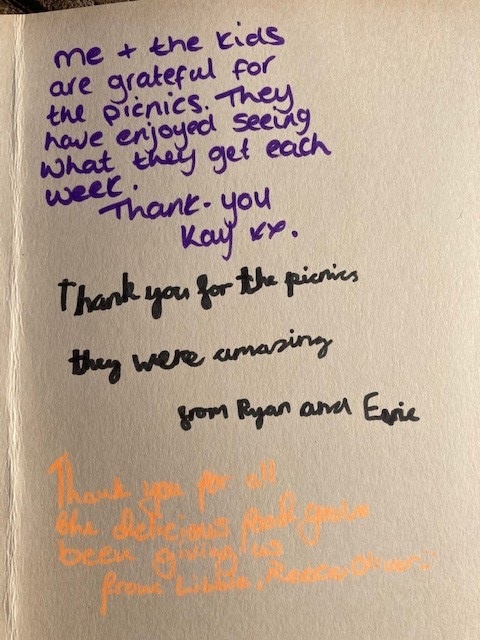 me + the kids
are grateful for
the picnics. They
have enjoyed seeing
what they get each
week.
Thank-you
Kay xx.
Thank you for the picnics
they were amazing
from Ryan and Evie
Thank you for all
the delicious food you've
been giving us
from